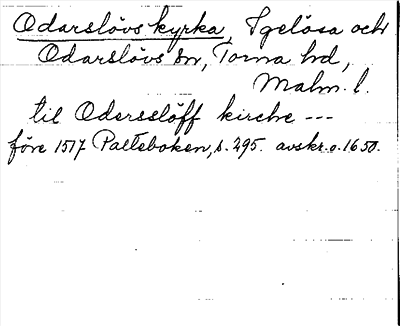 Odarslövs kyrka, Igelösa och
Odarslövs sn, Torna hd,
Malm. l.
til Odersslöff kirche ---
före 1517 Palteboken, s. 295. avskr. o. 1650.